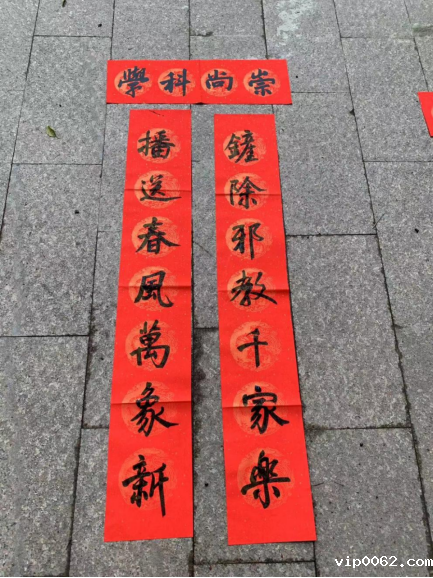 崇尚科學
鏟除邪教千家樂
播送春風萬象新
vip0062.com